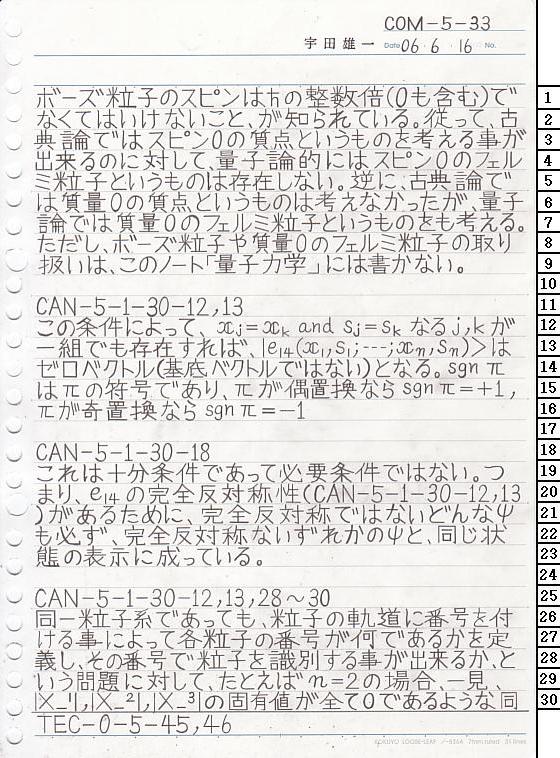 COM-5-33
宇田雄一 Date 06・6・16 No.
ボーズ粒子のスピンはħの整数倍(0も含む)で 1
なくてはいけないこと、が知られている。従って、古 2
典論ではスピン0の質点というものを考える事が 3
出来るのに対して、量子論的にはスピン0のフェル 4
ミ粒子というものは存在しない。逆に、古典論で 5
は質量0の質点というものは考えなかったが、量子 6
論では質量0のフェルミ粒子というものをも考える。 7
ただし、ボーズ粒子や質量0のフェルミ粒子の取り 8
扱いは、このノート「量子力学」には書かない。 9
10
CAN-5-1-30-12,13 11
この条件によって、xj=xk and sj=sk なるj,kが 12
一組でも存在すれば、|e14(x1,s1;---;xn,sn)>は 13
ゼロベクトル(基底ベクトルではない)となる。sgn π 14
はπの符号であり、πが偶置換ならsgn π=+1, 15
πが奇置換ならsgn π=-1 16
17
CAN-5-1-30-18 18
これは十分条件であって必要条件ではない。つ 19
まり、e14の完全反対称性(CAN-5-1-30-12,13 20
)があるために、完全反対称ではないどんなψ 21
も必ず、完全反対称ないずれかのψと、同じ状 22
態の表示に成っている。 23
24
CAN-5-1-30-12,13,28~30 25
同一粒子系であっても、粒子の軌道に番号を付 26
ける事によって各粒子の番号が何であるかを定 27
義し、その番号で粒子を識別する事が出来るか、と 28
いう問題に対して、たとえばn=2の場合、一見、 29
|X_1|,|X_2|,|X_3|の固有値が全て0であるような同 30
TEC-0-5-45,46
KOKUYO LOOSE-LEAF ノ-836A 7mm ruled 31 lines